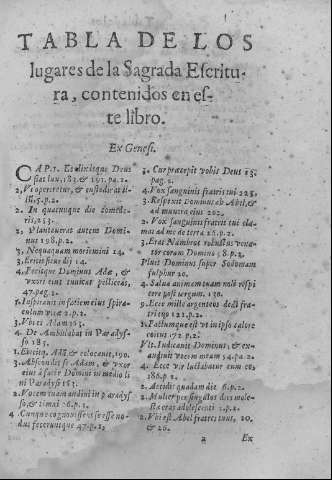 TABLA DE LOS
lugares de la Sagrada Escritu-
ra, contenidos en es-
te libro.
Ex Genesi.
CAP. 1. Et dixitque Deus
fiat lux. 183. & 191. pa. 2.
2, Vt operetur, & custodiret il-
5. p. 2.
2. In quacunque die comede-
ris, 253.
2, Plantauerat autem Domi-
nus 198. p. 2.
3, Nequaquam moriemini 24.
3, Eritis sicut dij 14.
4, Fecitque Dominus Adæ, &
vxori eius tunicas pelliceas,
47. pag. 2.
5, Inspirauit in faciem eius spira-
culum vitæ 2. p. 2.
3, Vbi es Adam 163.
4. De Ambulabat in Paradys-
so 185.
3, Eiecitq. Adā & colocauit, 190.
3. Abscondit se Adam, & vxor
eius à facie Domini in medio li
ni Paradysi 163.
2, Vocem tuam audiui in paradys
so, & timui 26. p. 2.
4 Cunque cognouissent se esse no-
dus 47. p. 2,
3. Cur præcepit vobis Deus 15.
pag. 2.
4. Vox sanguinis fratris tui 228.
3. Respixit Dominus ab Abel, &
ad munera eius 202.
2. Vox sanguinis fratris tui cla-
mat ad me de terra 26. p. 2.
3, Erat Nambrot robustus vena-
tor coram Domino 58. p. 2.
Pluit Dominus super Sodomam
sulphur 20.
4. Salua animam tuam noli respi
cere post tergum. 130.
4. Ecce mille argenteos dedi fra-
tri tuo 121. p. 2.
3. in ipso calore
72 p. 2.
Vit. Iudicauit Dominus, & ex-
audiuit vocem meam 54. p. 2.
4. Ecce vir luctabatur cum eo,
186. p. 2.
2, Accidit quadam die 6. p. 2.
2. Mulier per singulos dies mole-
sta erat adolescenti 1. p. 2.
2. Vbi est Abel frater tuus, 20,
& 26.
a Ex